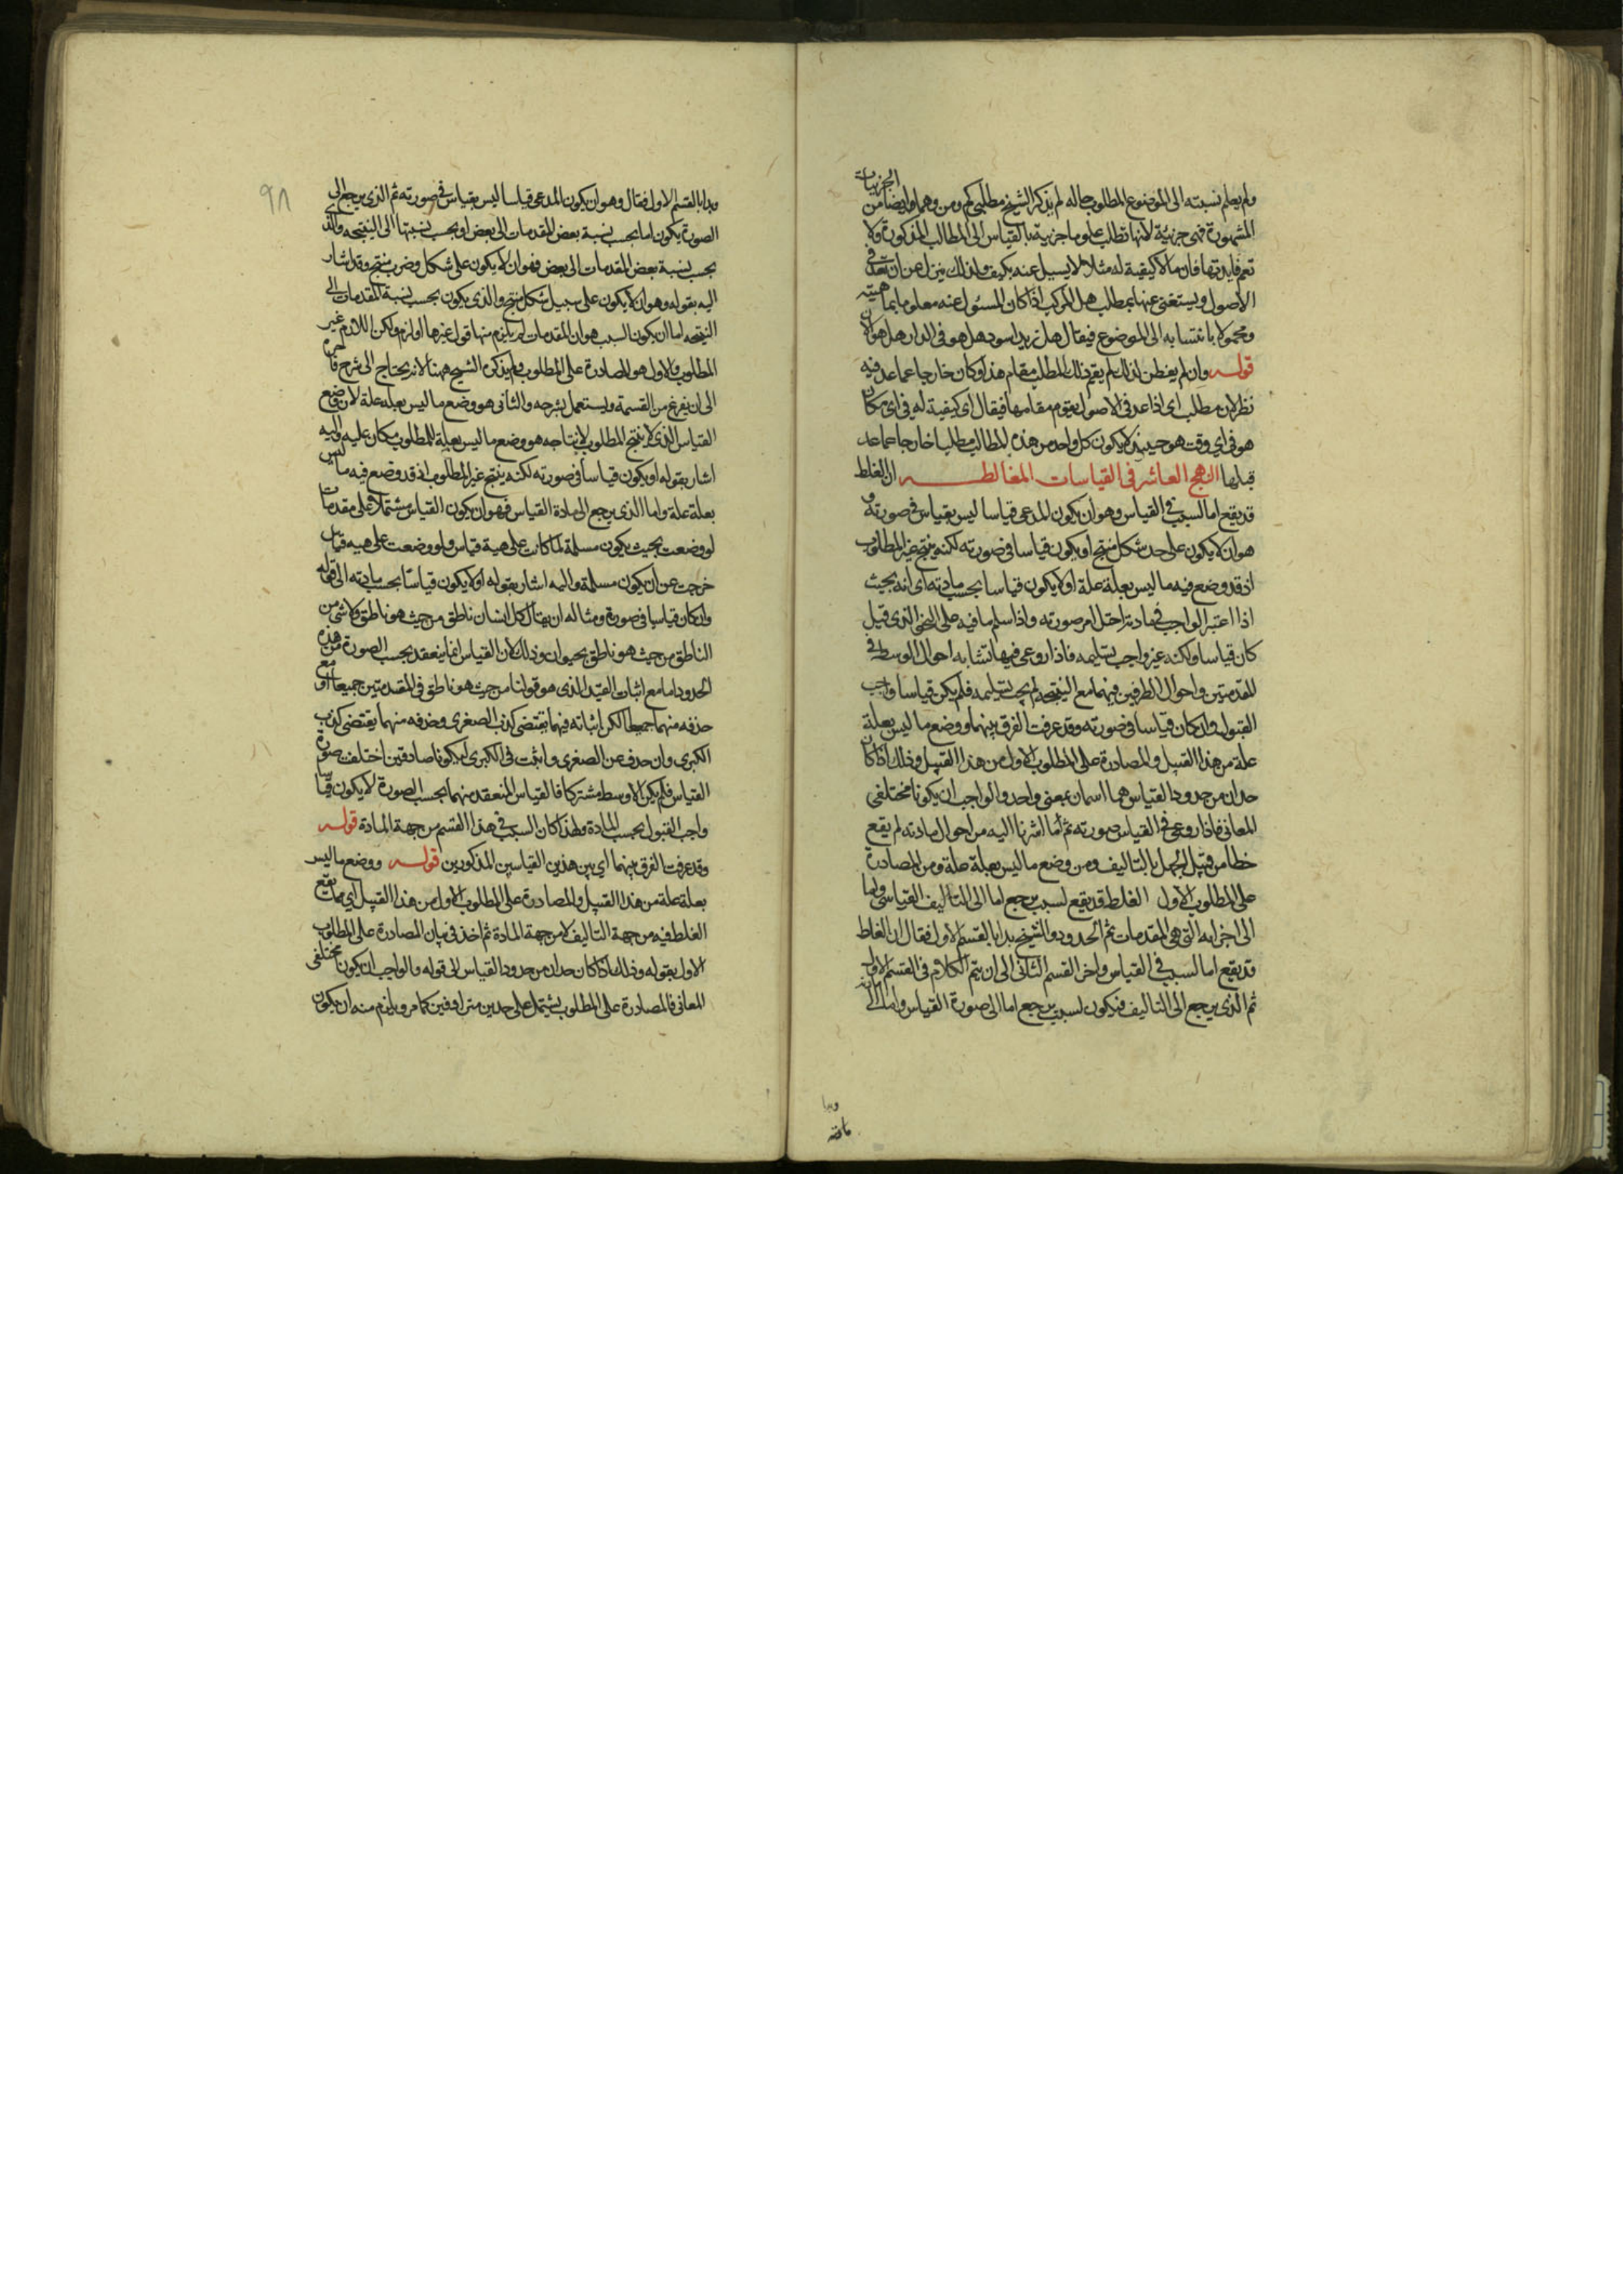 ولم يعلم نسبته الى الموضوع المطلوب حاله لم يذكر الشيخ مطلبي كم ومن وهما وايضا من الجزئيات
المشهورة فهى جزئية لانها تطلب علوما جزئية بالقياس الى المطالب المذكورة ولا
تعم فايدتها فان ما لا كيفية له مثلا لا يسيل عنه بكيف ولذلك ينزل عن ان تعد فى
الاصول ويستغنى عنها بمطلب هل المركب اذا كان المسئول عنه معلوما بماهيته
ومجهولا بانتسابه الى الموضوع فيقال هل زيد اسود هل هو فى الدار هل هو الان
قوله وان لم يفطن لذلك لم يقم ذلك المطلب مقام هذا وكان خارجا عما عد فيه
نظر لان مطلب اى اذا عد فى الاصول يقوم مقامها فيقال اى كيفية له فى اى مكان
هو فى اى وقت هو حينئذ لا يكون كل واحد من هذه المطالب مطلبا خارجا عما عد
قبلها النهج العاشر فى القياسات المغالطه ان الغلط
قد يقع اما لسبب فى القياس وهو ان يكون المدعى قياسا ليس بقياس فى صورته و
هو ان لا يكون على حد شكل منتج او يكون قياسا فى صورته لكنه ينتج غير المطلوب
اذ قد وضع فيه ما ليس بعلة علة او لا يكون قياسا بحسب مادته اى انه بحيث
اذا اعتبر الواجب فى مادته اختل امر صورته واذا سلم ما فيه على النحو الذى قيل
كان قياسا ولكنه غير واجب تسليمه فاذا روعى فيها تشابه احوال الوسط فى
المقدمتين واحوال الطرفين فيهما مع النتيجة لم يجب تسليمه فلم يكن قياسا واجب
القبول وان كان قياسا فى صورته وقد عرفت الفرق بينهما ووضع ما ليس بعلة
علة من هذا القبيل والمصادرة على المطلوب الاول من هذا القبيل وذلك اذا كان
حدان من حدود القياس هما اسمان بمعنى واحد والواجب ان يكونا مختلفى
المعانى فاذا روعى فى القياس صورته ثم ما اشرنا اليه من احوال مادته لم يقع
خطا من قبل الجهل بالتاليف ومن وضع ما ليس بعلة علة ومن المصادرة
على المطلوب الاول الغلط قد يقع لسبب يرجع اما الى التاليف القياسى واما
الى اجزايه التى هى المقدمات ثم الحدود والشيخ بدا بالقسم الاول فقال ان الغلط
قد يقع اما لسبب فى القياس واخر القسم الثانى الى ان يتم الكلام فى القسم الاول
ثم الذى يرجع الى التاليف فيكون لسبب يرجع اما الى صورة القياس واما الى مادته
٩٨
وبدا بالقسم الاول فقال وهو ان يكون المدعى قياسا ليس بقياس فى صورته ثم الذى يرجع الى
الصورة يكون اما بحسب نسبة بعض المقدمات الى بعض او بحسب نسبتها الى النتيجه والذى
بحسب نسبة بعض المقدمات الى بعض فهو ان لا يكون على شكل وضرب منتج وقد اشار
اليه بقوله وهو ان لا يكون على سبيل شكل منتج والذى يكون بحسب نسبة المقدمات الى
النتيجه اما ان يكون السبب هو ان المقدمات لم يلزم منها قول غيرها او لزم ولكن اللازم غير
المطلوب والاول هو المصادرة على المطلوب ولم يذكره الشيخ ههنا لانه يحتاج الى شرح فاخره
الى ان يفرغ من القسمة ويستعمل بشرحه والثانى هو وضع ما ليس بعلة علة لان وضع
القياس الذى لا ينتج المطلوب لانتاجه هو وضع ما ليس بعلة للمطلوب مكان عليه واليه
اشار بقوله او يكون قياسا فى صورته لكنه ينتج غير المطلوب اذ قد وضع فيه ما ليس
بعلة علة واما الذى يرجع الى مادة القياس فهو ان يكون القياس مشتملا على مقدمات
لو وضعت بحيث يكون مسلمة لما كانت على هيية قياس ولو وضعت على هيه قياس
خرجت عن ان يكون مسلمة واليه اشار بقوله او لا يكون قياسا بحسب مادته الى قوله
وان كان قياسا فى صورة ومثاله ان يقال كل انسان ناطق من حيث هو ناطق ولا شى من
الناطق من حيث هو ناطق بحيوان وذلك لان القياس انما ينعقد بحسب الصورة من هذه
الحدود اما مع اثبات القيد الذى هو قولنا من حيث هو ناطق فى المقدمتين جميعا او مع
حذفه منهما جميعا لكن اثباته فيهما تقتضى كذب الصغرى وحذفه منهما يقتضى كذب
الكبرى وان حذف عن الصغرى واثبت فى الكبرى ليكونا صادقين اختلفت صورة
القياس فلم يكن الاوسط مشتركا فالقياس المنعقد منهما بحسب الصورة لا يكون قياسا
واجب القبول بحسب المادة ولهذا كان السبب فى هذا القسم من جهة المادة قوله
وقد عرفت الفرق بينهما اى بين هذين القياسين المذكورين قوله ووضع ما ليس
بعلة علة من هذا القبيل والمصادرة على المطلوب الاول من هذا القبيل اى مما يقع
الغلط فيه من جهة التاليف لا من جهة المادة ثم اخذ فى بيان المصادرة على المطلوب
الاول بقوله وذلك اذا كان حدان من حدود القياس الى قوله والواجب ان يكون مختلفى
المعانى فالمصادرة على المطلوب يشتمل على حدين مترادفين كما مر ويلزم منه ان يكون